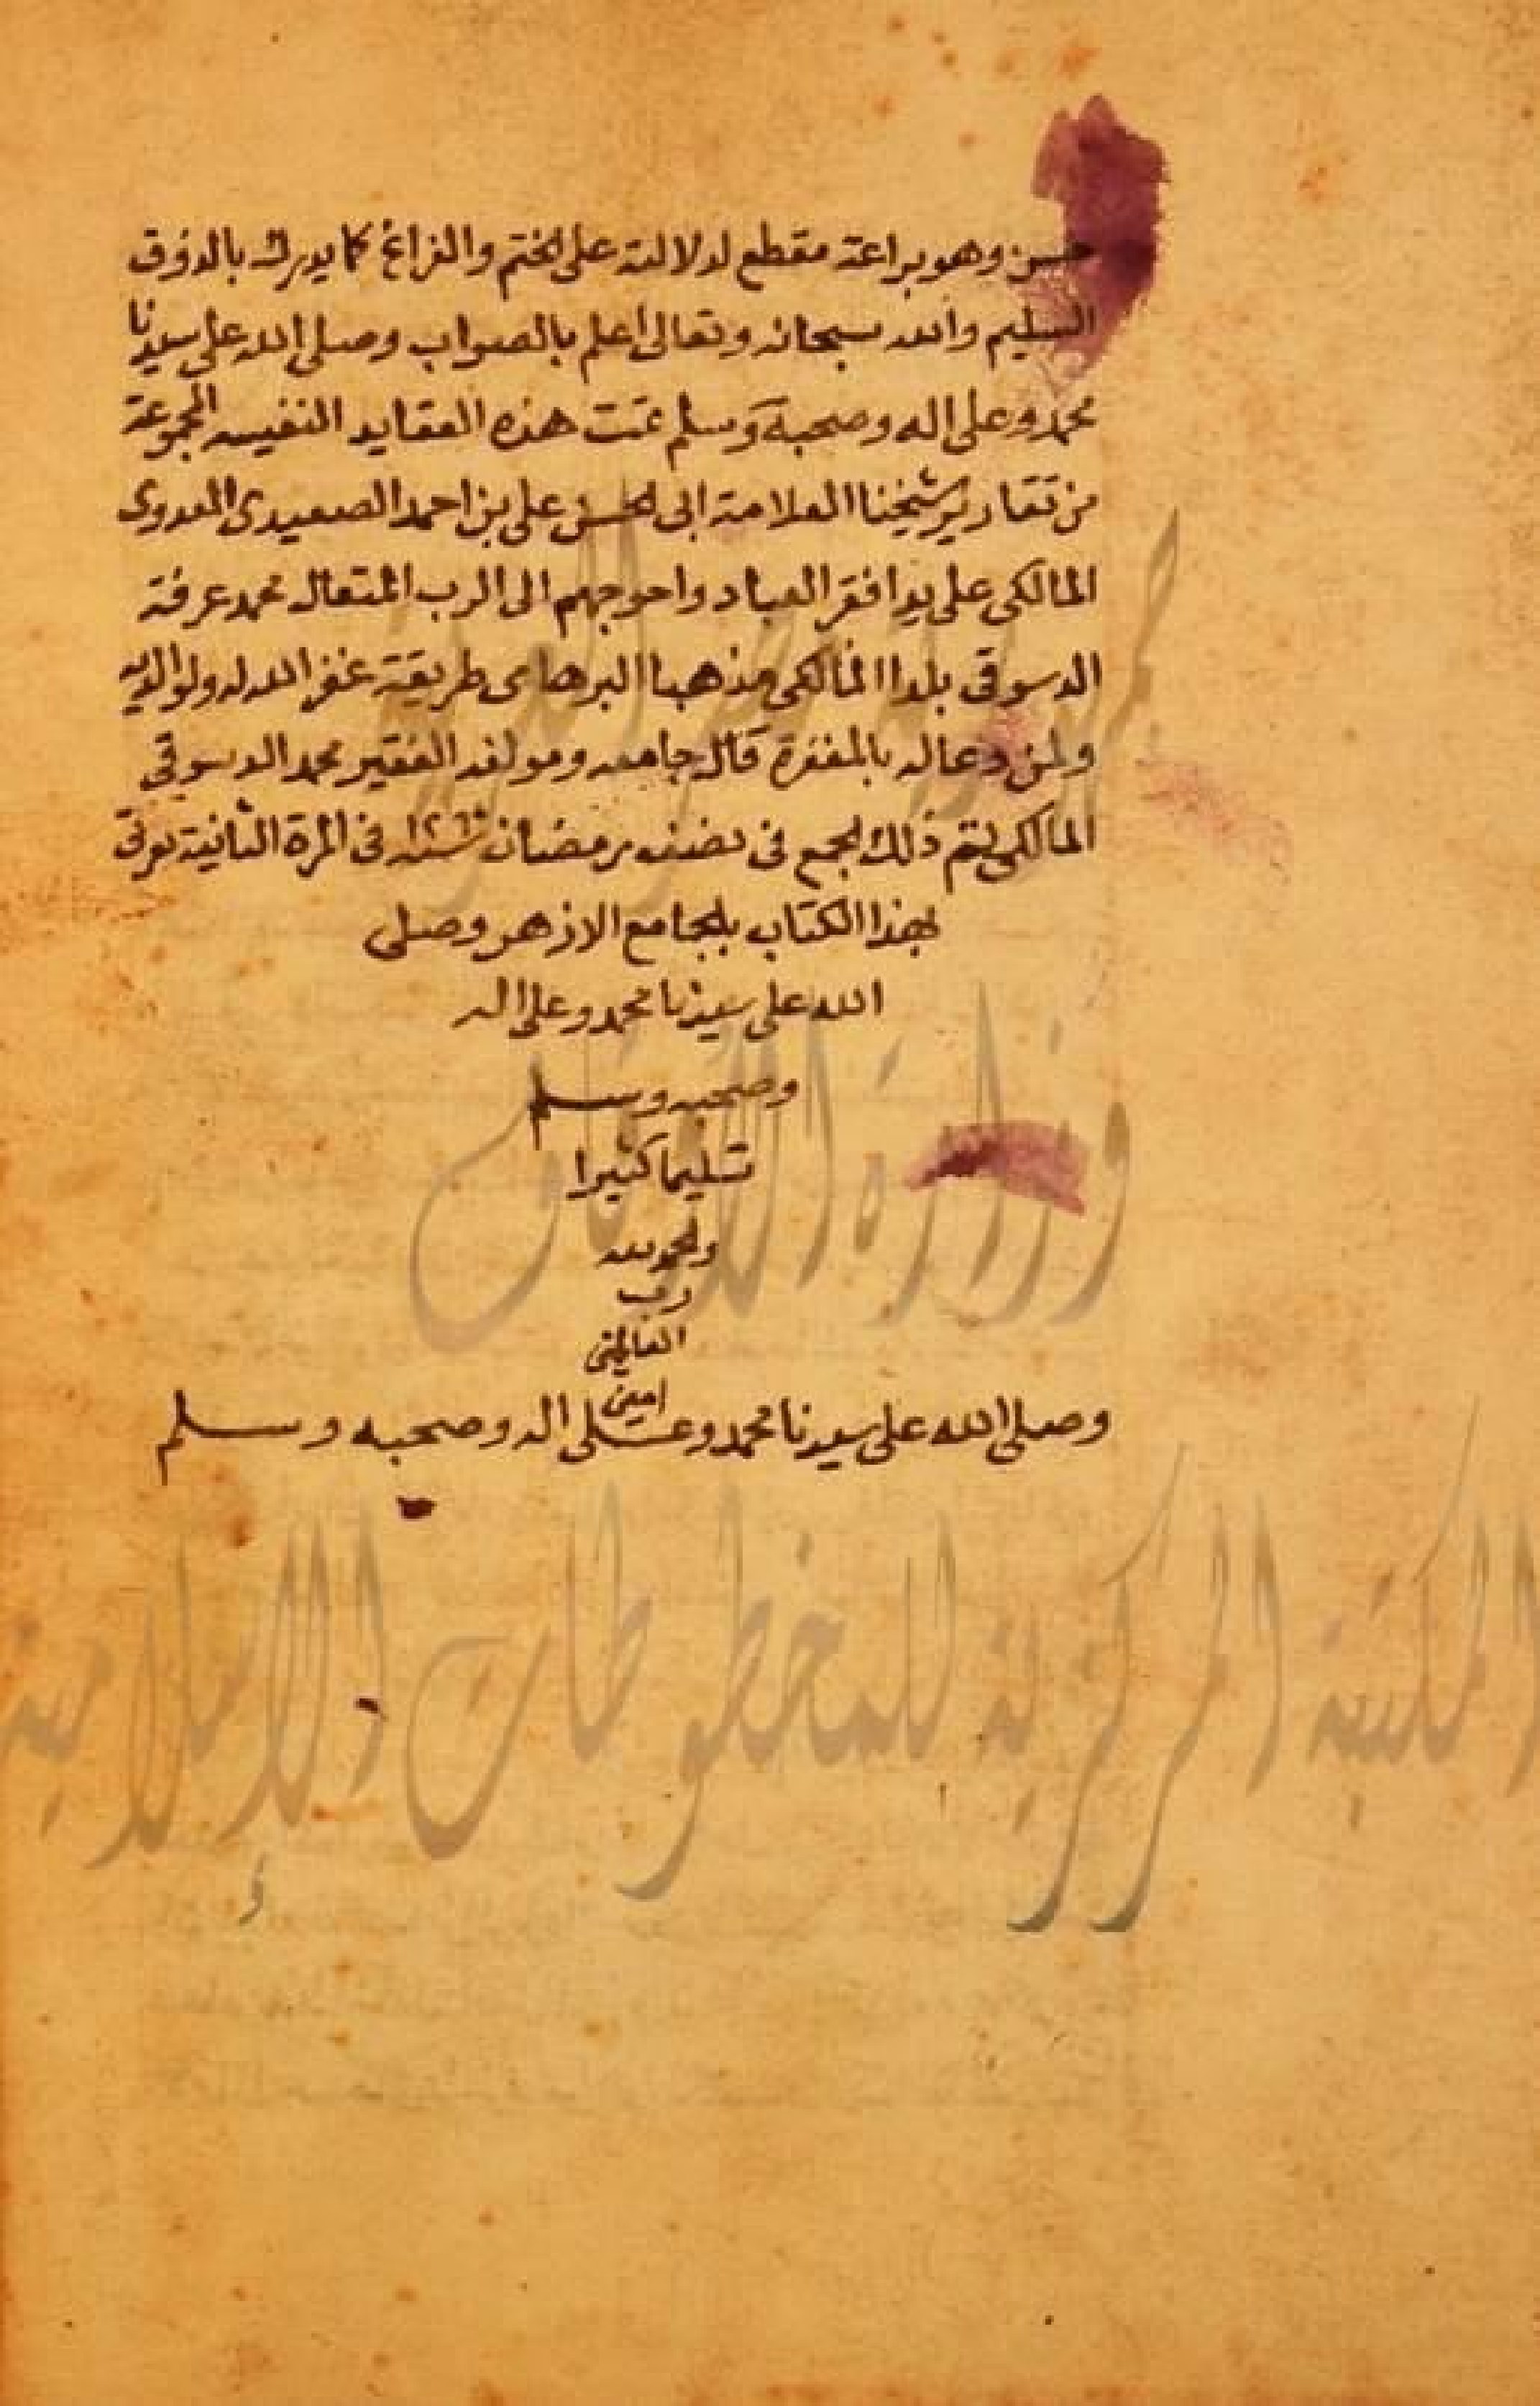 حسن وهو براعة مقطع لدلالته على الختم والفراغ كما يدرك بالذوق
السليم والله سبحانه وتعالى اعلم بالصواب وصلى الله على سيدنا
محمد وعلى اله وصحبه وسلم تمت هذه العقايد النفيسه المجموعة
من تقارير شيخنا العلامة ابى الحسن على بن احمد الصعيدى العدوى
المالكى على يد افقر العباد واحوجهم الى الرب المتعال محمد عرفة
الدسوقى بلدا المالكى مذهبا البرهامى طريقة غفر الله له ولوالديه
ولمن دعا له بالمغفرة قال جامعه ومولفه الفقير محمد الدسوقي
المالكى تم ذلك الجمع فى نصف رمضان سنة فى المرة الثانية
بهذا الكتاب بالجامع الازهر وصلى
الله على سيدنا محمد وعلى اله
وصحبه وسلم
تسليما كثيرا
والحمد لله
رب
العالمين
امين
وصلى الله على سيدنا محمد وعلى اله وصحبه وسلم
وزارة الأوقاف
المكتبة المركزية للمخطوطات الإسلامية